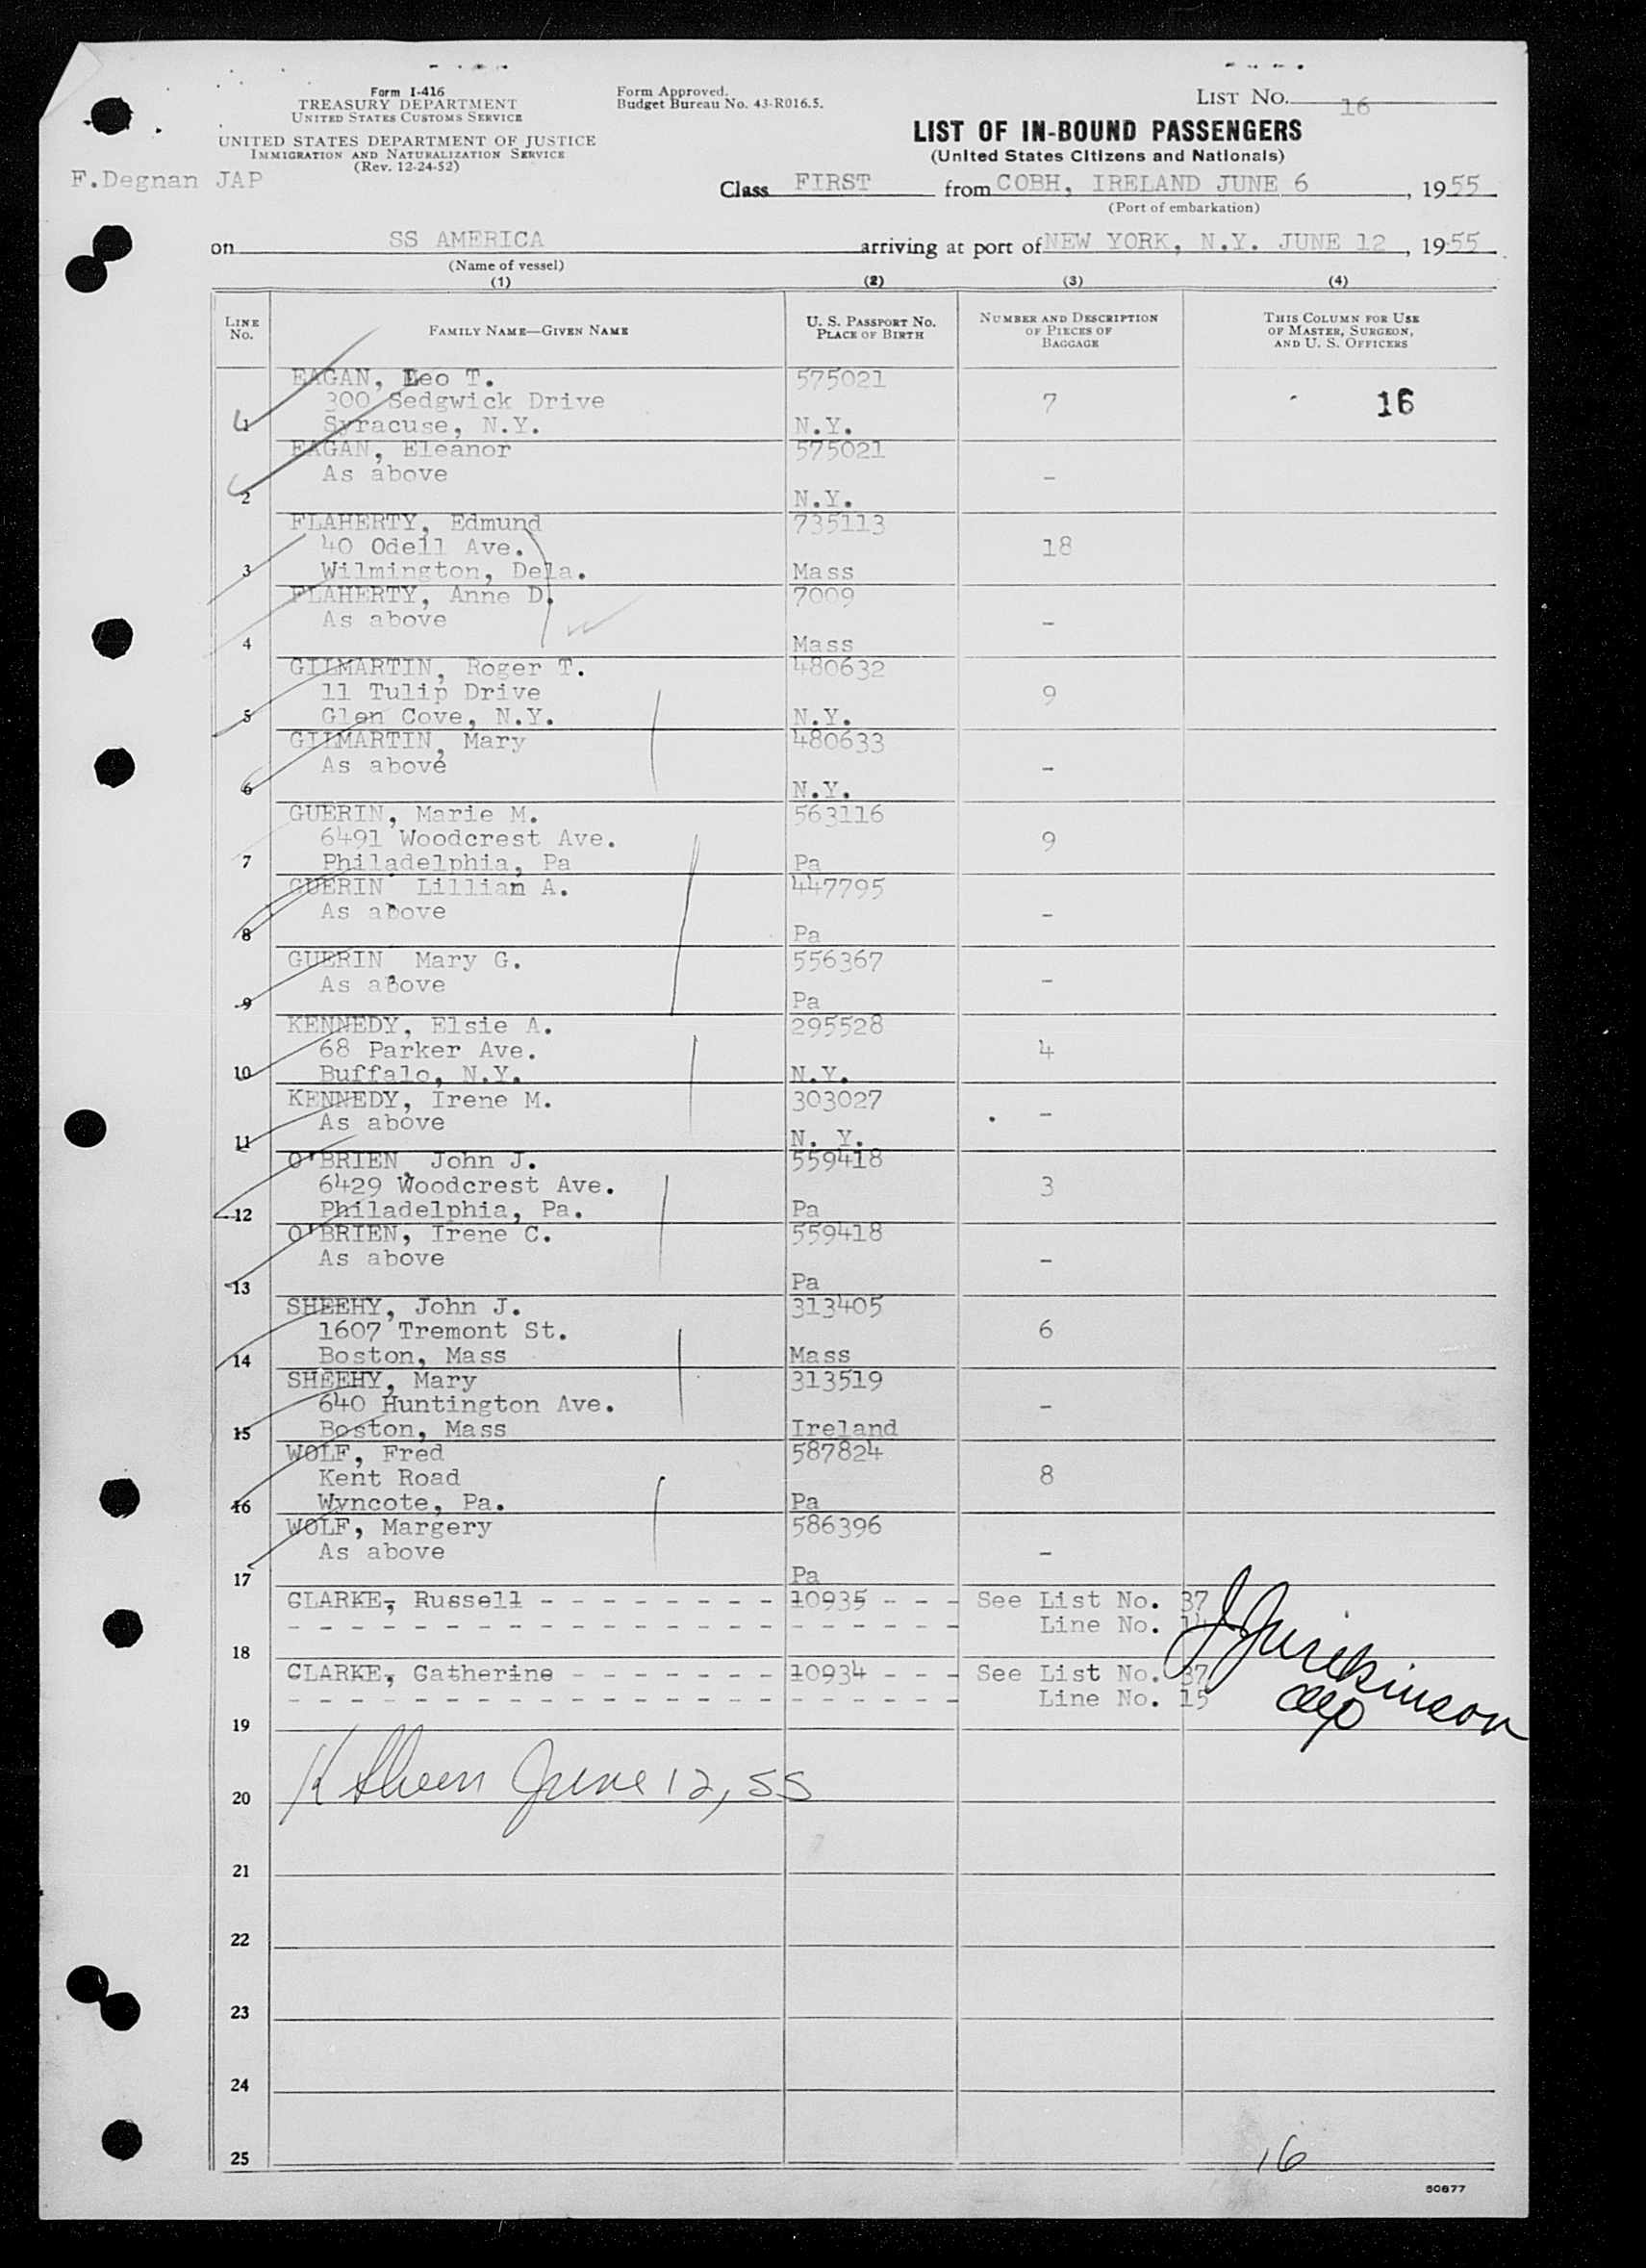 Form I-416
TREASURY DEPARTMENT
UNITED STATES CUSTOMS SERVICE
UNITED STATES DEPARTMENT OF JUSTICE
IMMIGRATION AND NATURALIZATION SERVICE
(Rev. 12-24-52)
Form Approved.
Budget Bureau No. 43-R016.5.
LIST NO. 16
LIST OF IN-BOUND PASSENGERS
(United States Citizens and Nationals)
F.Degnan JAP
Class FIRST from COBH, IRELAND JUNE 6, 1955
(Port of embarkation)
on SS AMERICA arriving at port of NEW YORK, N.Y. JUNE 12, 1955
(Name of vessel)
(1) (2) (3) (4)
LINE NO. FAMILY NAME—GIVEN NAME U. S. PASSPORT NO. PLACE OF BIRTH NUMBER AND DESCRIPTION OF PIECES OF BAGGAGE THIS COLUMN FOR USE OF MASTER, SURGEON, AND U. S. OFFICERS
EAGAN, Leo T. 575021
300 Sedgwick Drive 7 16
1 Syracuse, N.Y. N.Y.
EAGAN, Eleanor 575021
As above -
2 N.Y.
FLAHERTY, Edmund 735113
40 Odell Ave. 18
3 Wilmington, Dela. Mass
FLAHERTY, Anne D. 7009
As above -
4 Mass
GILMARTIN, Roger T. 480632
11 Tulip Drive 9
5 Glen Cove, N.Y. N.Y.
GILMARTIN, Mary 480633
As above -
6 N.Y.
GUERIN, Marie M. 563116
6491 Woodcrest Ave. 9
7 Philadelphia, Pa Pa
GUERIN Lillian A. 447795
As above -
8 Pa
GUERIN Mary G. 556367
As above -
9 Pa
KENNEDY, Elsie A. 295528
68 Parker Ave. 4
10 Buffalo, N.Y. N.Y.
KENNEDY, Irene M. 303027
As above -
11 N. Y.
O'BRIEN, John J. 559418
6429 Woodcrest Ave. 3
12 Philadelphia, Pa. Pa
O'BRIEN, Irene C. 559418
As above -
13 Pa
SHEEHY, John J. 313405
1607 Tremont St. 6
14 Boston, Mass Mass
SHEEHY, Mary 313519
640 Huntington Ave. -
15 Boston, Mass Ireland
WOLF, Fred 587824
Kent Road 8
16 Wyncote, Pa. Pa
WOLF, Margery 586396
As above -
17 Pa
CLARKE, Russell - - - - - - - - 10935 - - - See List No. 37
- - - - - - - - - - - - - - - - - - - - Line No. 14
18
CLARKE, Catherine - - - - - - - 10934 - - - See List No. 37
- - - - - - - - - - - - - - - - - - - - Line No. 15
19
20 June 12, 55
21
22
23
24
25
16
50877